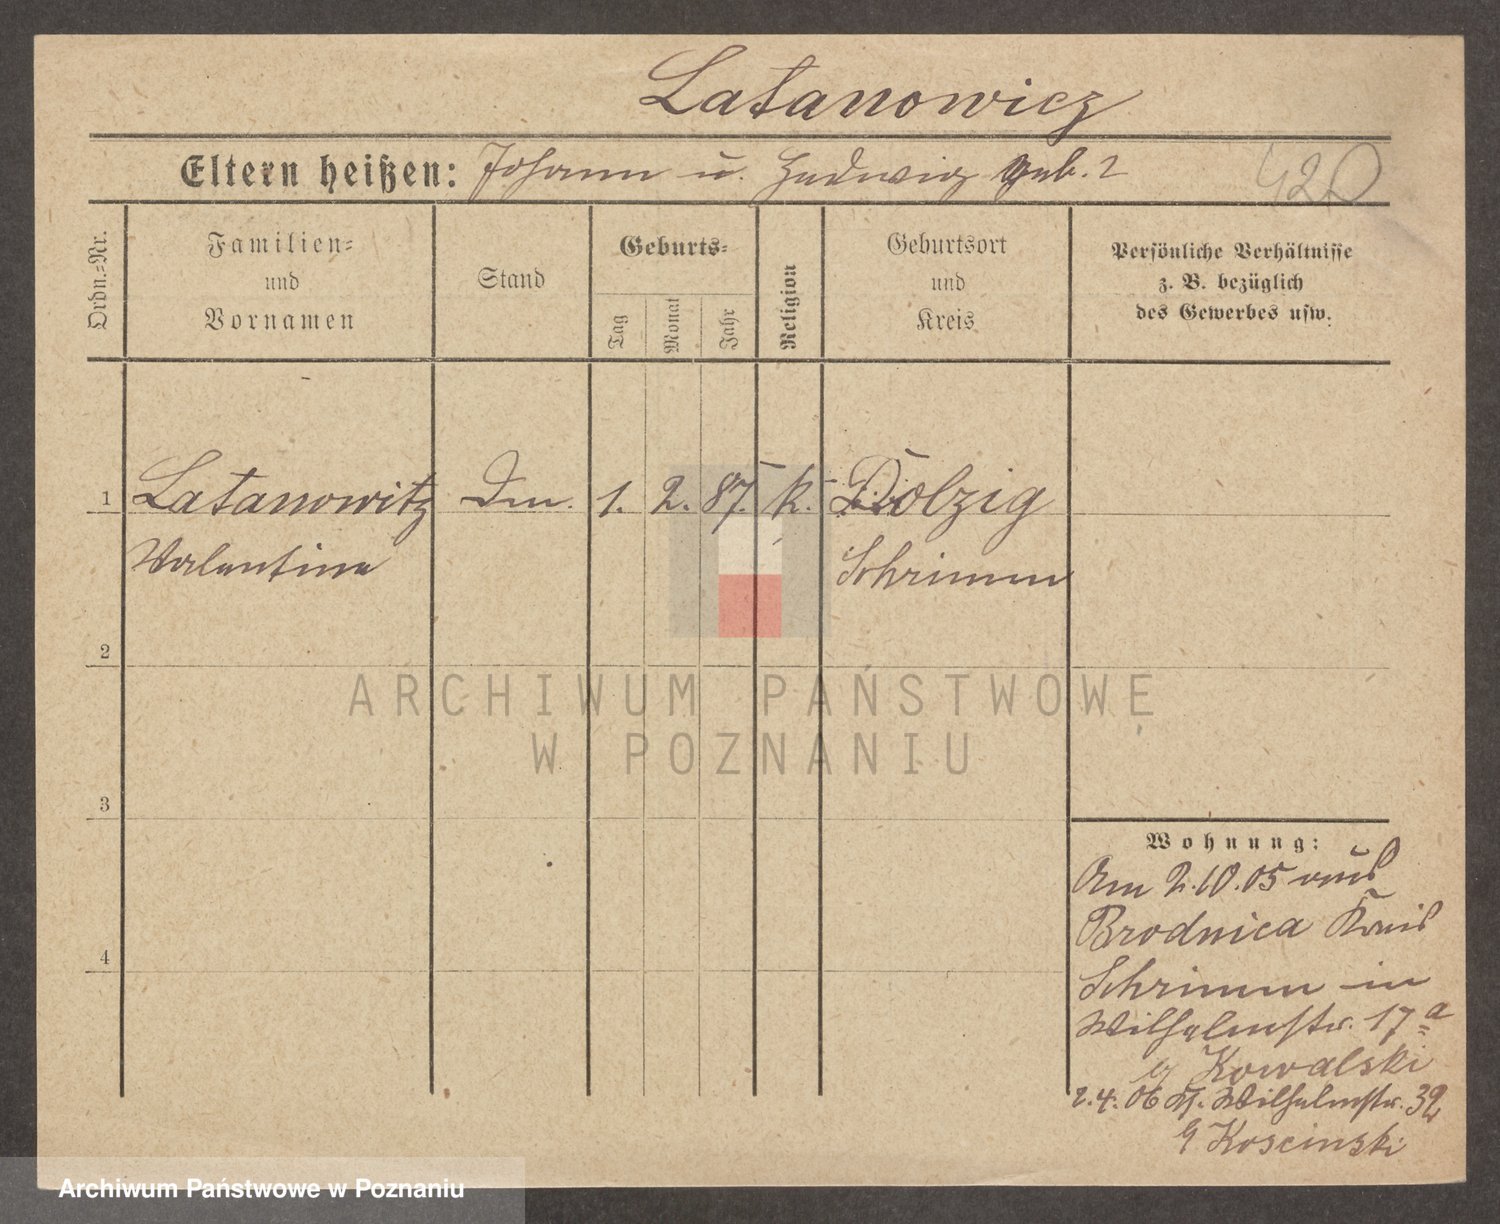 Latanowicz
Eltern heißen: Johann u. Hedwig geb. ?
420
Ordn.=Nr.
Familien=
und
Vornamen
Stand
Geburts=
Tag
Monat
Jahr
Religion
Geburtsort
und
Kreis
Persönliche Verhältnisse
z. B. bezüglich
des Gewerbes usw.
1 Latanowitz 1. 2. 87. k. Dolzig
Valentine Schrimm
2
3
4
ARCHIWUM PAŃSTWOWE
W POZNANIU
Wohnung:
Am 2.10.05 aus
Brodnica Kreis
Schrimm in
Wilhelmstr. 17 a
b/ Kowalski
2.4.06 Wilhelmstr. 32
Koscinski
Archiwum Państwowe w Poznaniu